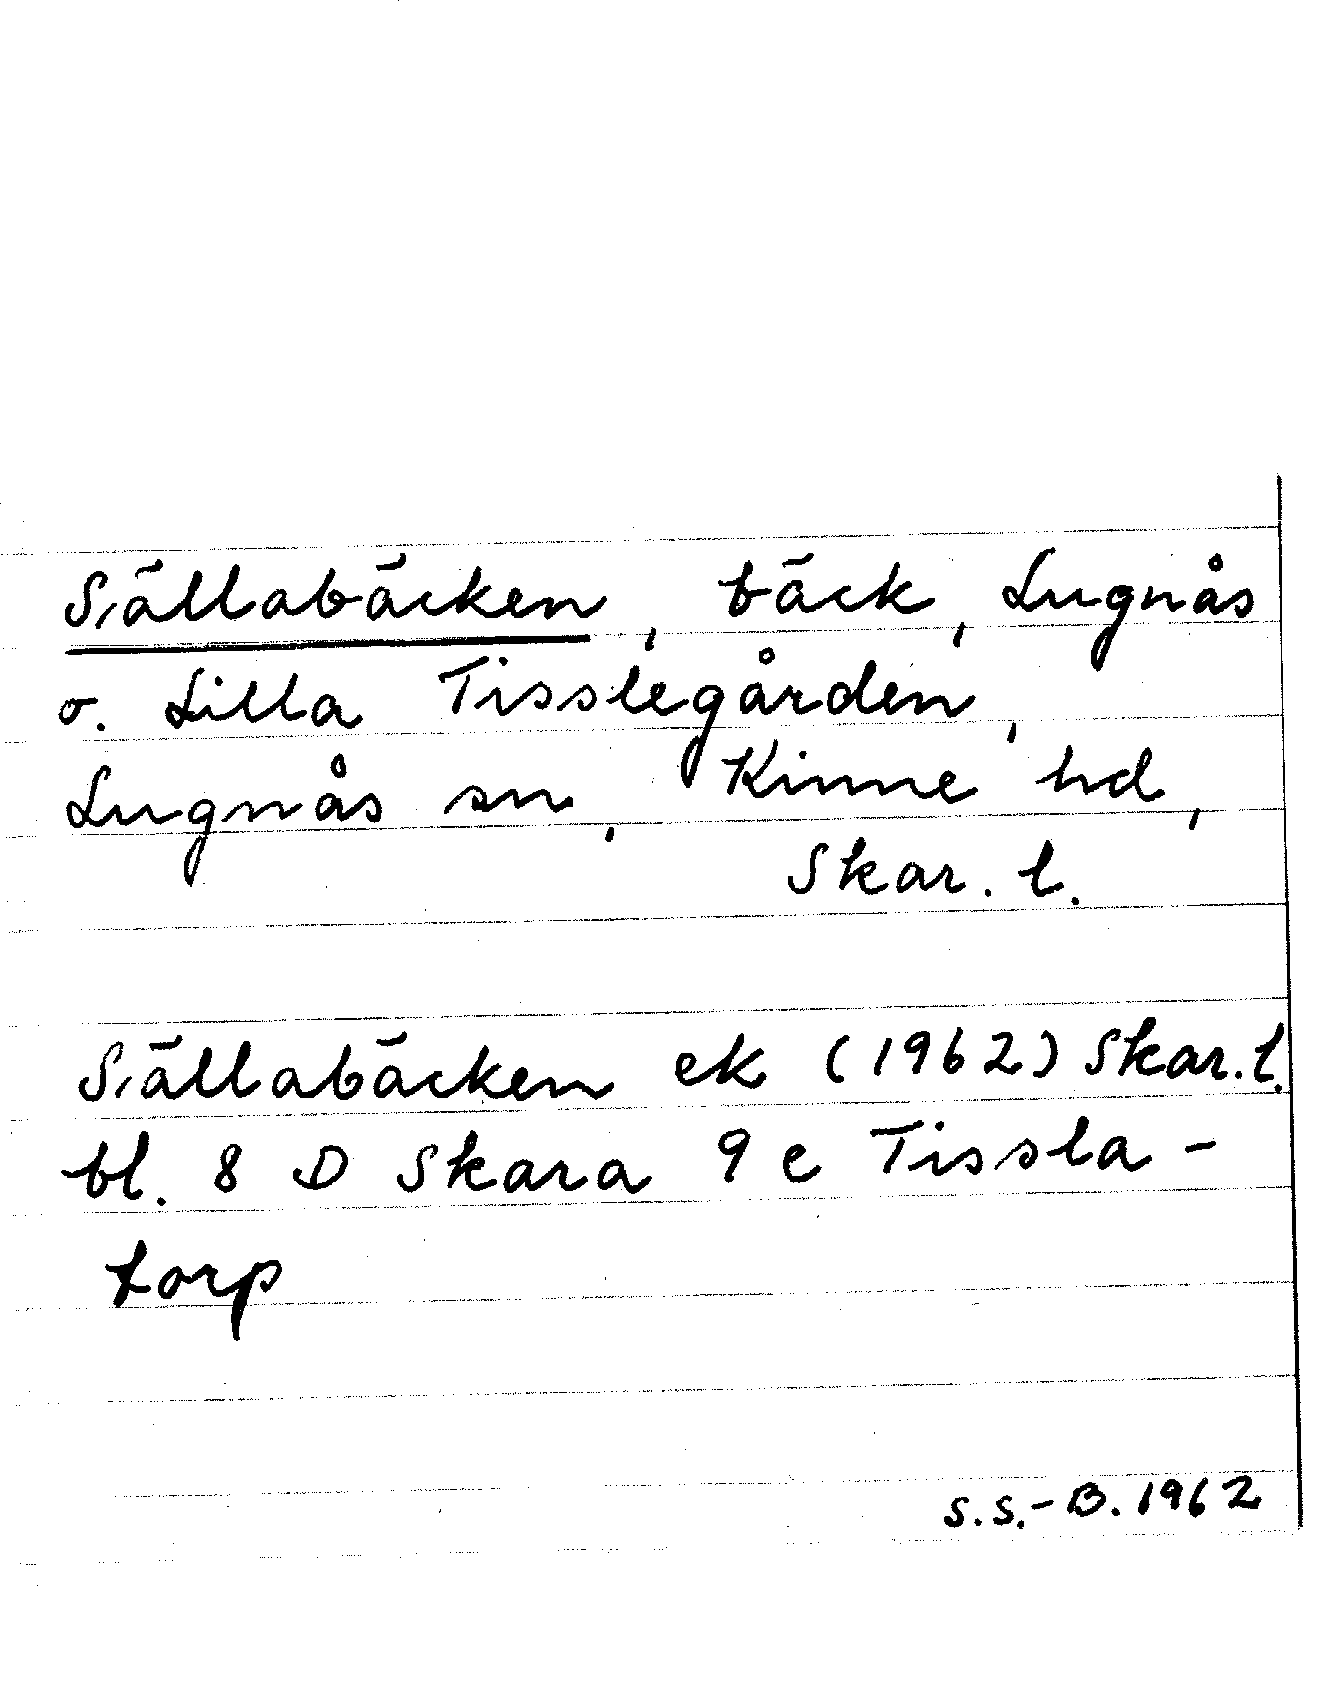 Sällabäcken, bäck, Lugnås
o. Lilla Tisslegården,
Lugnås sn, Kinne hd,
Skar. l.
Sällabäcken ek (1962) Skar. l.
bl. 8 D Skara 9 e Tissla-
torp
S.S.-B. 1962